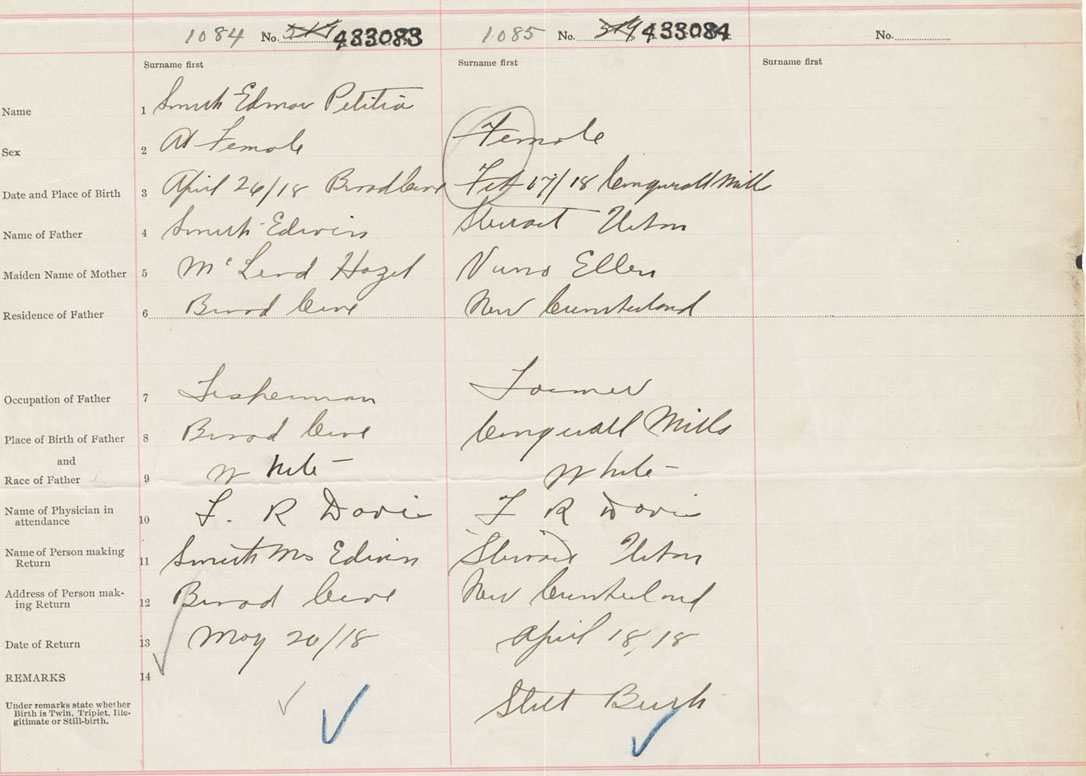 1084 No. 517 433083 1085 No. 519 433084 No.
Surname first Surname first Surname first
Name 1 Smith Edmar Petitia
Sex 2 Female Female
Date and Place of Birth 3 April 26/18 Broad Cove Feb 07/18 Conquerall Mill
Name of Father 4 Smith Edwin
Maiden Name of Mother 5 McLeod Hazel Ellen
Residence of Father 6 Broad Cove New Cumberland
Occupation of Father 7 Fisherman Farmer
Place of Birth of Father 8 Broad Cove Conquerall Mills
and
Race of Father 9 White White
Name of Physician in
attendance 10 F. R Davis F R Davis
Name of Person making
Return 11 Smith Mrs Edwin
Address of Person mak-
ing Return 12 Broad Cove New Cumberland
Date of Return 13 May 20/18 April 18, 18
REMARKS 14
Under remarks state whether
Birth is Twin, Triplet, Ille-
gitimate or Still-birth.
Still Birth